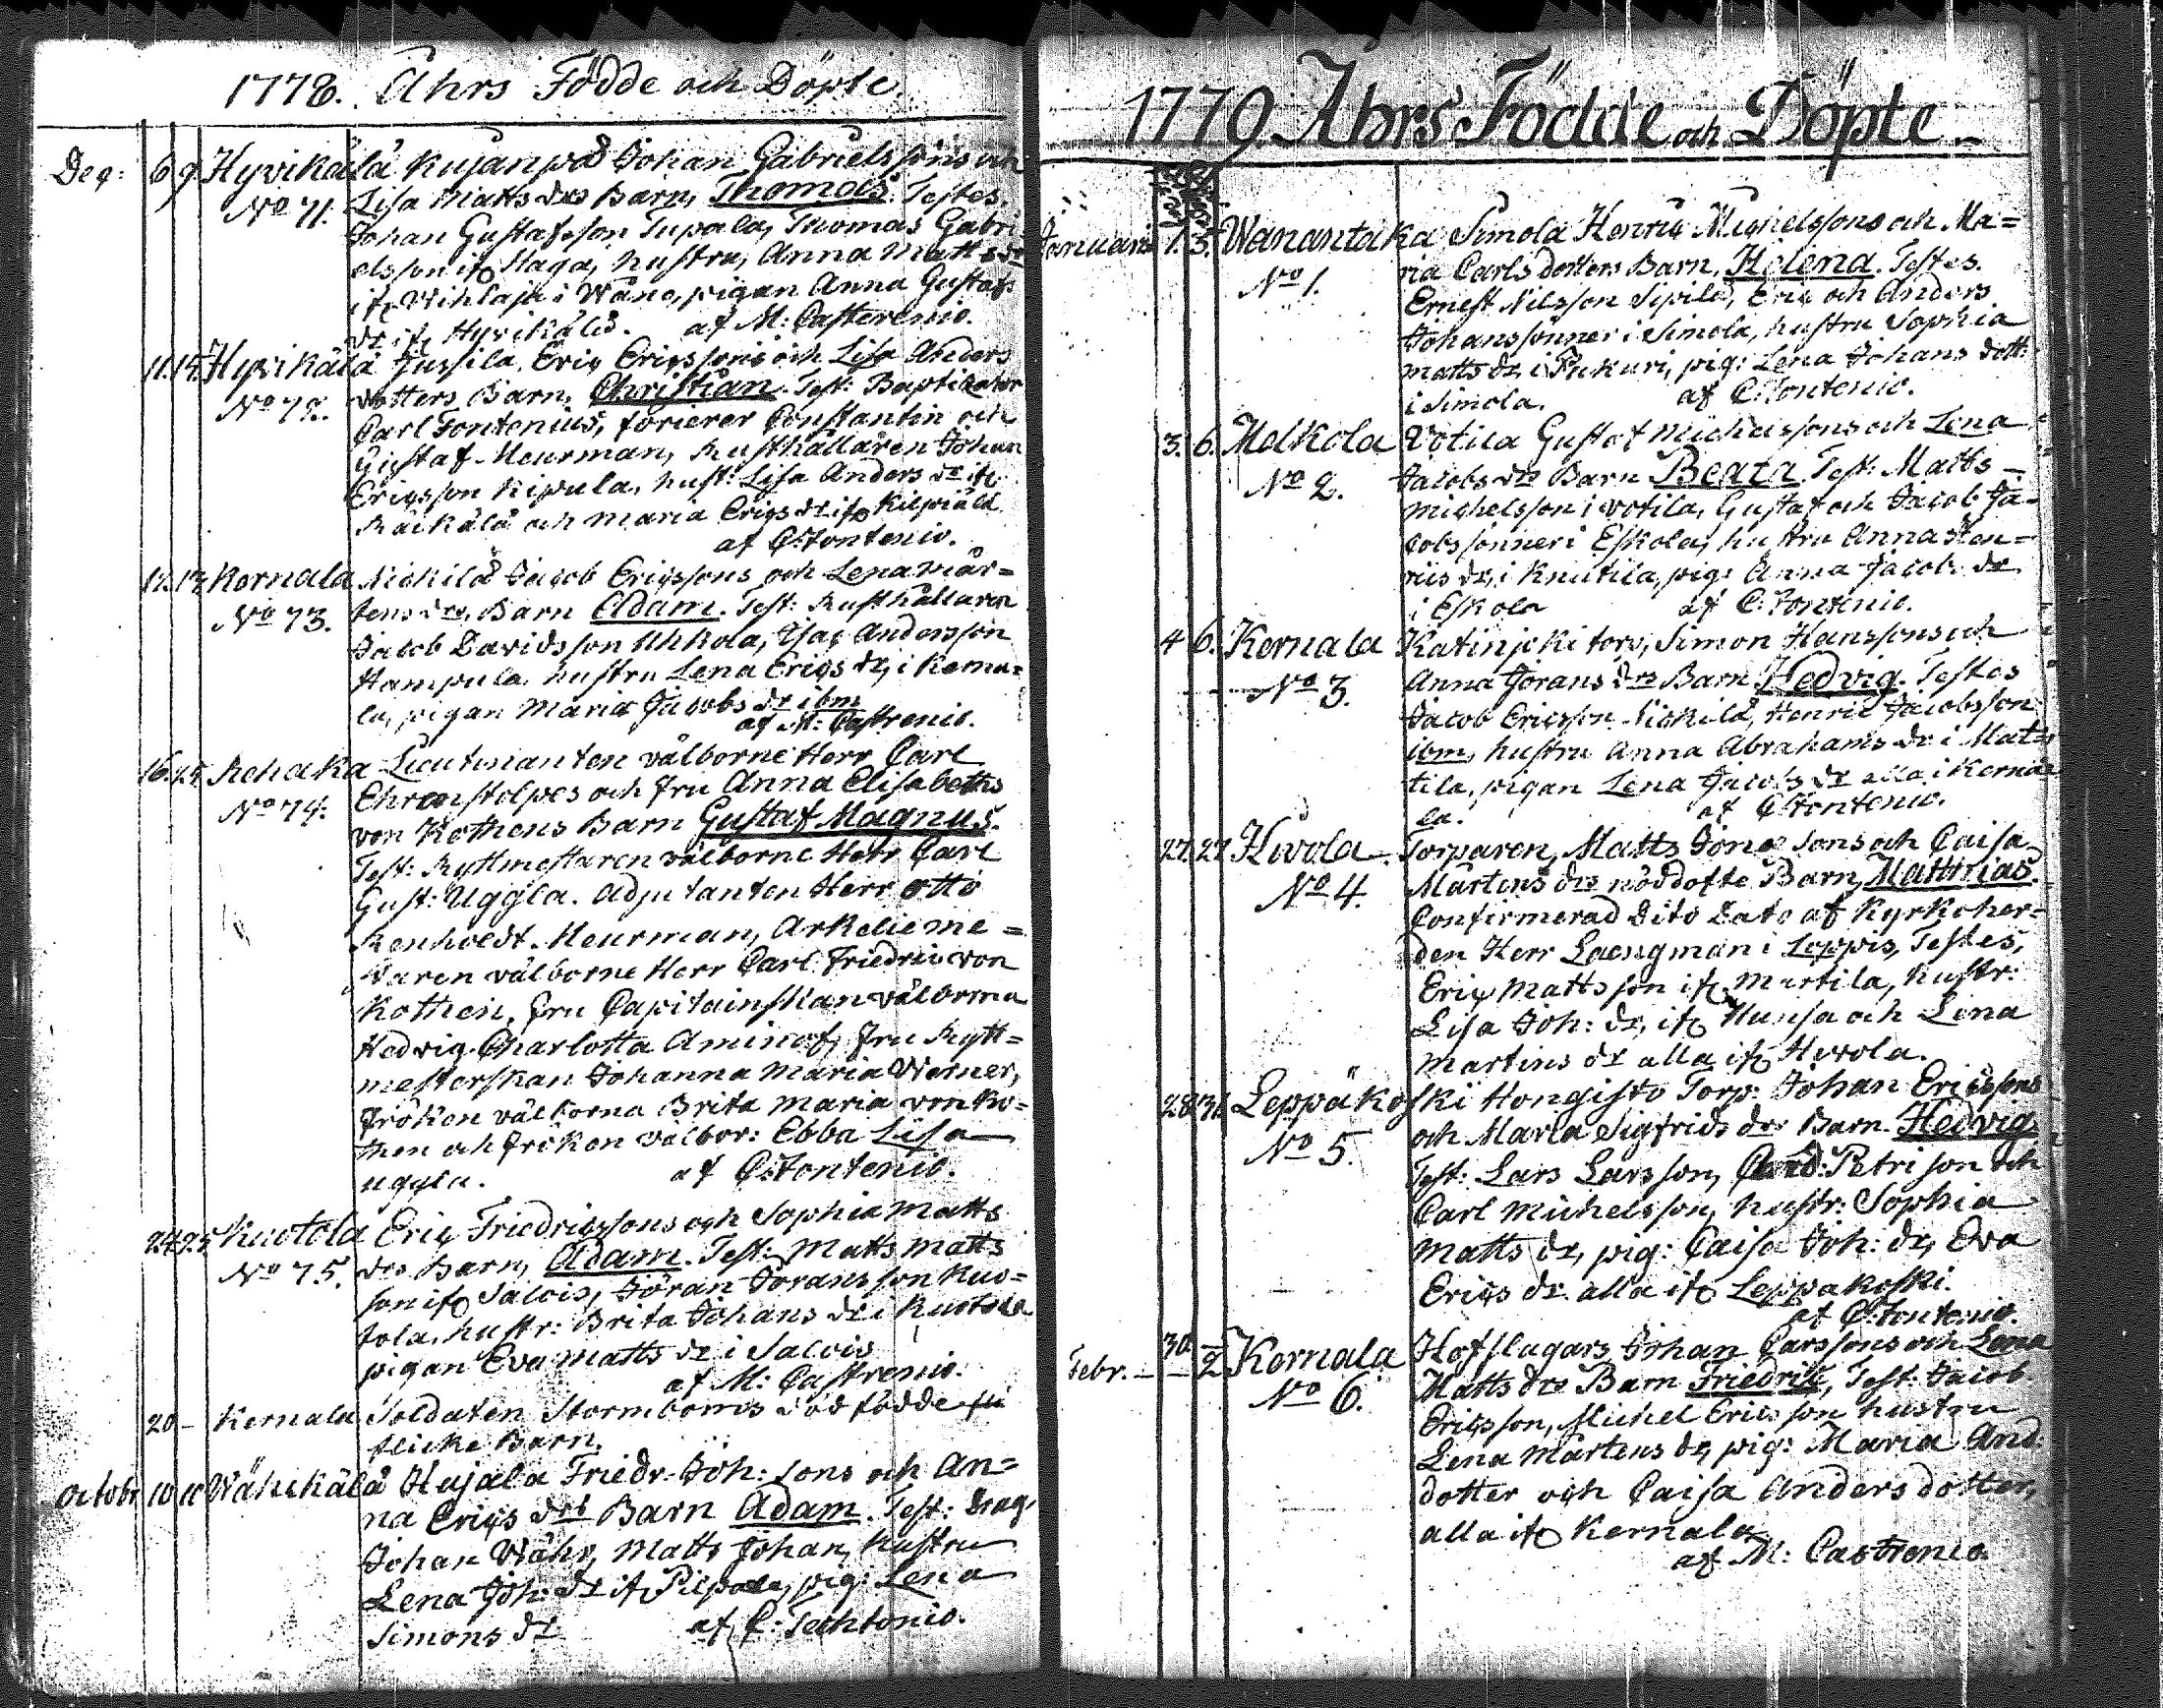 1778. Åhrs Födde och Döpte.
Dec: 6 9 Hyvikälä Kujanpää Johan Gabrielssons och
No 71. Lisa Matts drs Barn, Thomas. Testes.
Johan Gustafsson Tupala, Thomas Gabri
elsson if Haga, hustru, Anna Matts dr
if Wihlaja i Wåno, pigan Anna Gustafs
dr if Hyvikälä. af M: Castrenio.
11. 14. Hyvikälä Jussila, Eric Ericssons och Lisa Anders
No 72. dotters Barn, Christian. Test: Baptizator
Carl Fontenius, forierer Constantin och
Gustaf Meurman, Rusthållaren Johan
Ericsson Kipula, hust: Lisa Anders dr if
Räikälä och Maria Erics dr if Kilpiälä
af C: Fontenio.
12. 13. Kernala Nickilä Jacob Ericssons och Lena Mår=
No 73. tens drs. Barn Adam. Test: Rusthållaren
Jacob Davidsson Uhkola, Isac Andersson
Hampula, hustru Lena Erics dr, i Kerna=
la, pigan Maria Jacobs dr ibm
af M: Castrenio.
16. Rehaka Lieutnanten välborne Herr Carl
No 74. Ehrenstolpes och fru Anna Elisabeths
von Kothens Barn Gustaf Magnus.
Test: Ryttmestaren välborne Herr Carl
Gust: Uggla. Adjutanten Herr Otto
Renholdt Meurman, Arkelieme=
staren välborne Herr Carl Friedric von
Kothen, fru Capitainskan välborna
Hedvig Charlotta Aminof, fru Rytt=
mesterskan Johanna Maria Werner,
fröken välborna Brita Maria von Ko=
then och fröken välbor: Ebba Lisa
Uggla. af C: Fontenio.
24. 25 Kuotola Eric Friedricssons och Sophia Matts
No 75. drs Barn, Adam. Test: Matts Matts
son if Salois, Jöran Göransson Kuo=
tola, hustr: Brita Johans dr i Kuotola
pigan Eva Matts dr i Salois
af M: Castrenio.
20 – Kernala Soldaten Stormboms dödfödde
flicke Barn.
Octobr 10 11 Wähikälä Hujala Friedr. Joh: sons och An=
na Erics drs Barn Adam. Test:
Johan Währ, Matts Johan, hustru
Lena Joh: dr if Pilpala, pig: Lena
Simons dr af C: Techtonio.
1779. Åhrs Födde och Döpte_
Januari 1. 3. Wanantaka Simola Henric Michelssons och Ma=
No 1. ria Carls dotters Barn, Helena. Testes.
Ernest Nilsson Sipilä, Eric och Anders
Johanssönner i Simola, hustru Sophia
Matts dr i Pukuri, pig: Lena Johans dott:
i Simola. af C: Fontenio.
3. 6. Melkola Votila Gustaf Michelssons och Lena
No 2. Jacobs drs Barn Beata. Test: Matts
Michelsson i Votila, Gustaf och Jacob Ja=
cobssönner i Eskola, hustru Anna Hen=
rics dr, i Knutila, pig: Anna Jacobs dr
i Eskola af C: Fontenio.
4 6. Kernala Katinjoki torp, Simon Hanssons och
No 3. Anna Görans drs Barn Hedvig. Testes
Jacob Ericsson Nickilä, Henric Jacobsson
ibm, hustru Anna Abrahams dr i Mat=
tila, pigan Lena Jacobs dr alla i Kerna=
la. af C: Fontenio.
27. 27 Hivola Torparen, Matts Jöns sons och Caisa
No 4. Mårtens drs nöddöpte Barn, Matthias.
Confirmerad dito dato af Kyrkoher=
den Herr Laengman i Loppis, Testes,
Eric Mattsson if Martila, hustr:
Lisa Joh: dr, if Hunsa och Lena
Martins dr alla if Hevola.
28. 31 Leppäkoski Hongisto Torp: Johan Ericssons
No 5. och Maria Sigfrids drs Barn. Hedvig
Test: Lars Larsson, Petri son och
Carl Michelsson, hustr: Sophia
Matts dr, pig: Caisa Joh: dr, Eva
Erics dr. alla if Leppäkoski.
af C: Fontenio.
Febr. – 30 2 Kernala Hofslagars Johan Carssons och Lena
No 6. Matts drs Barn Friedric, Test: Jacob
Ericsson, Michel Ericsson hustru
Lena Mårtens dr, pig: Maria And:
dotter och Caisa Anders dotter,
alla if Kernala
af M: Castrenio.